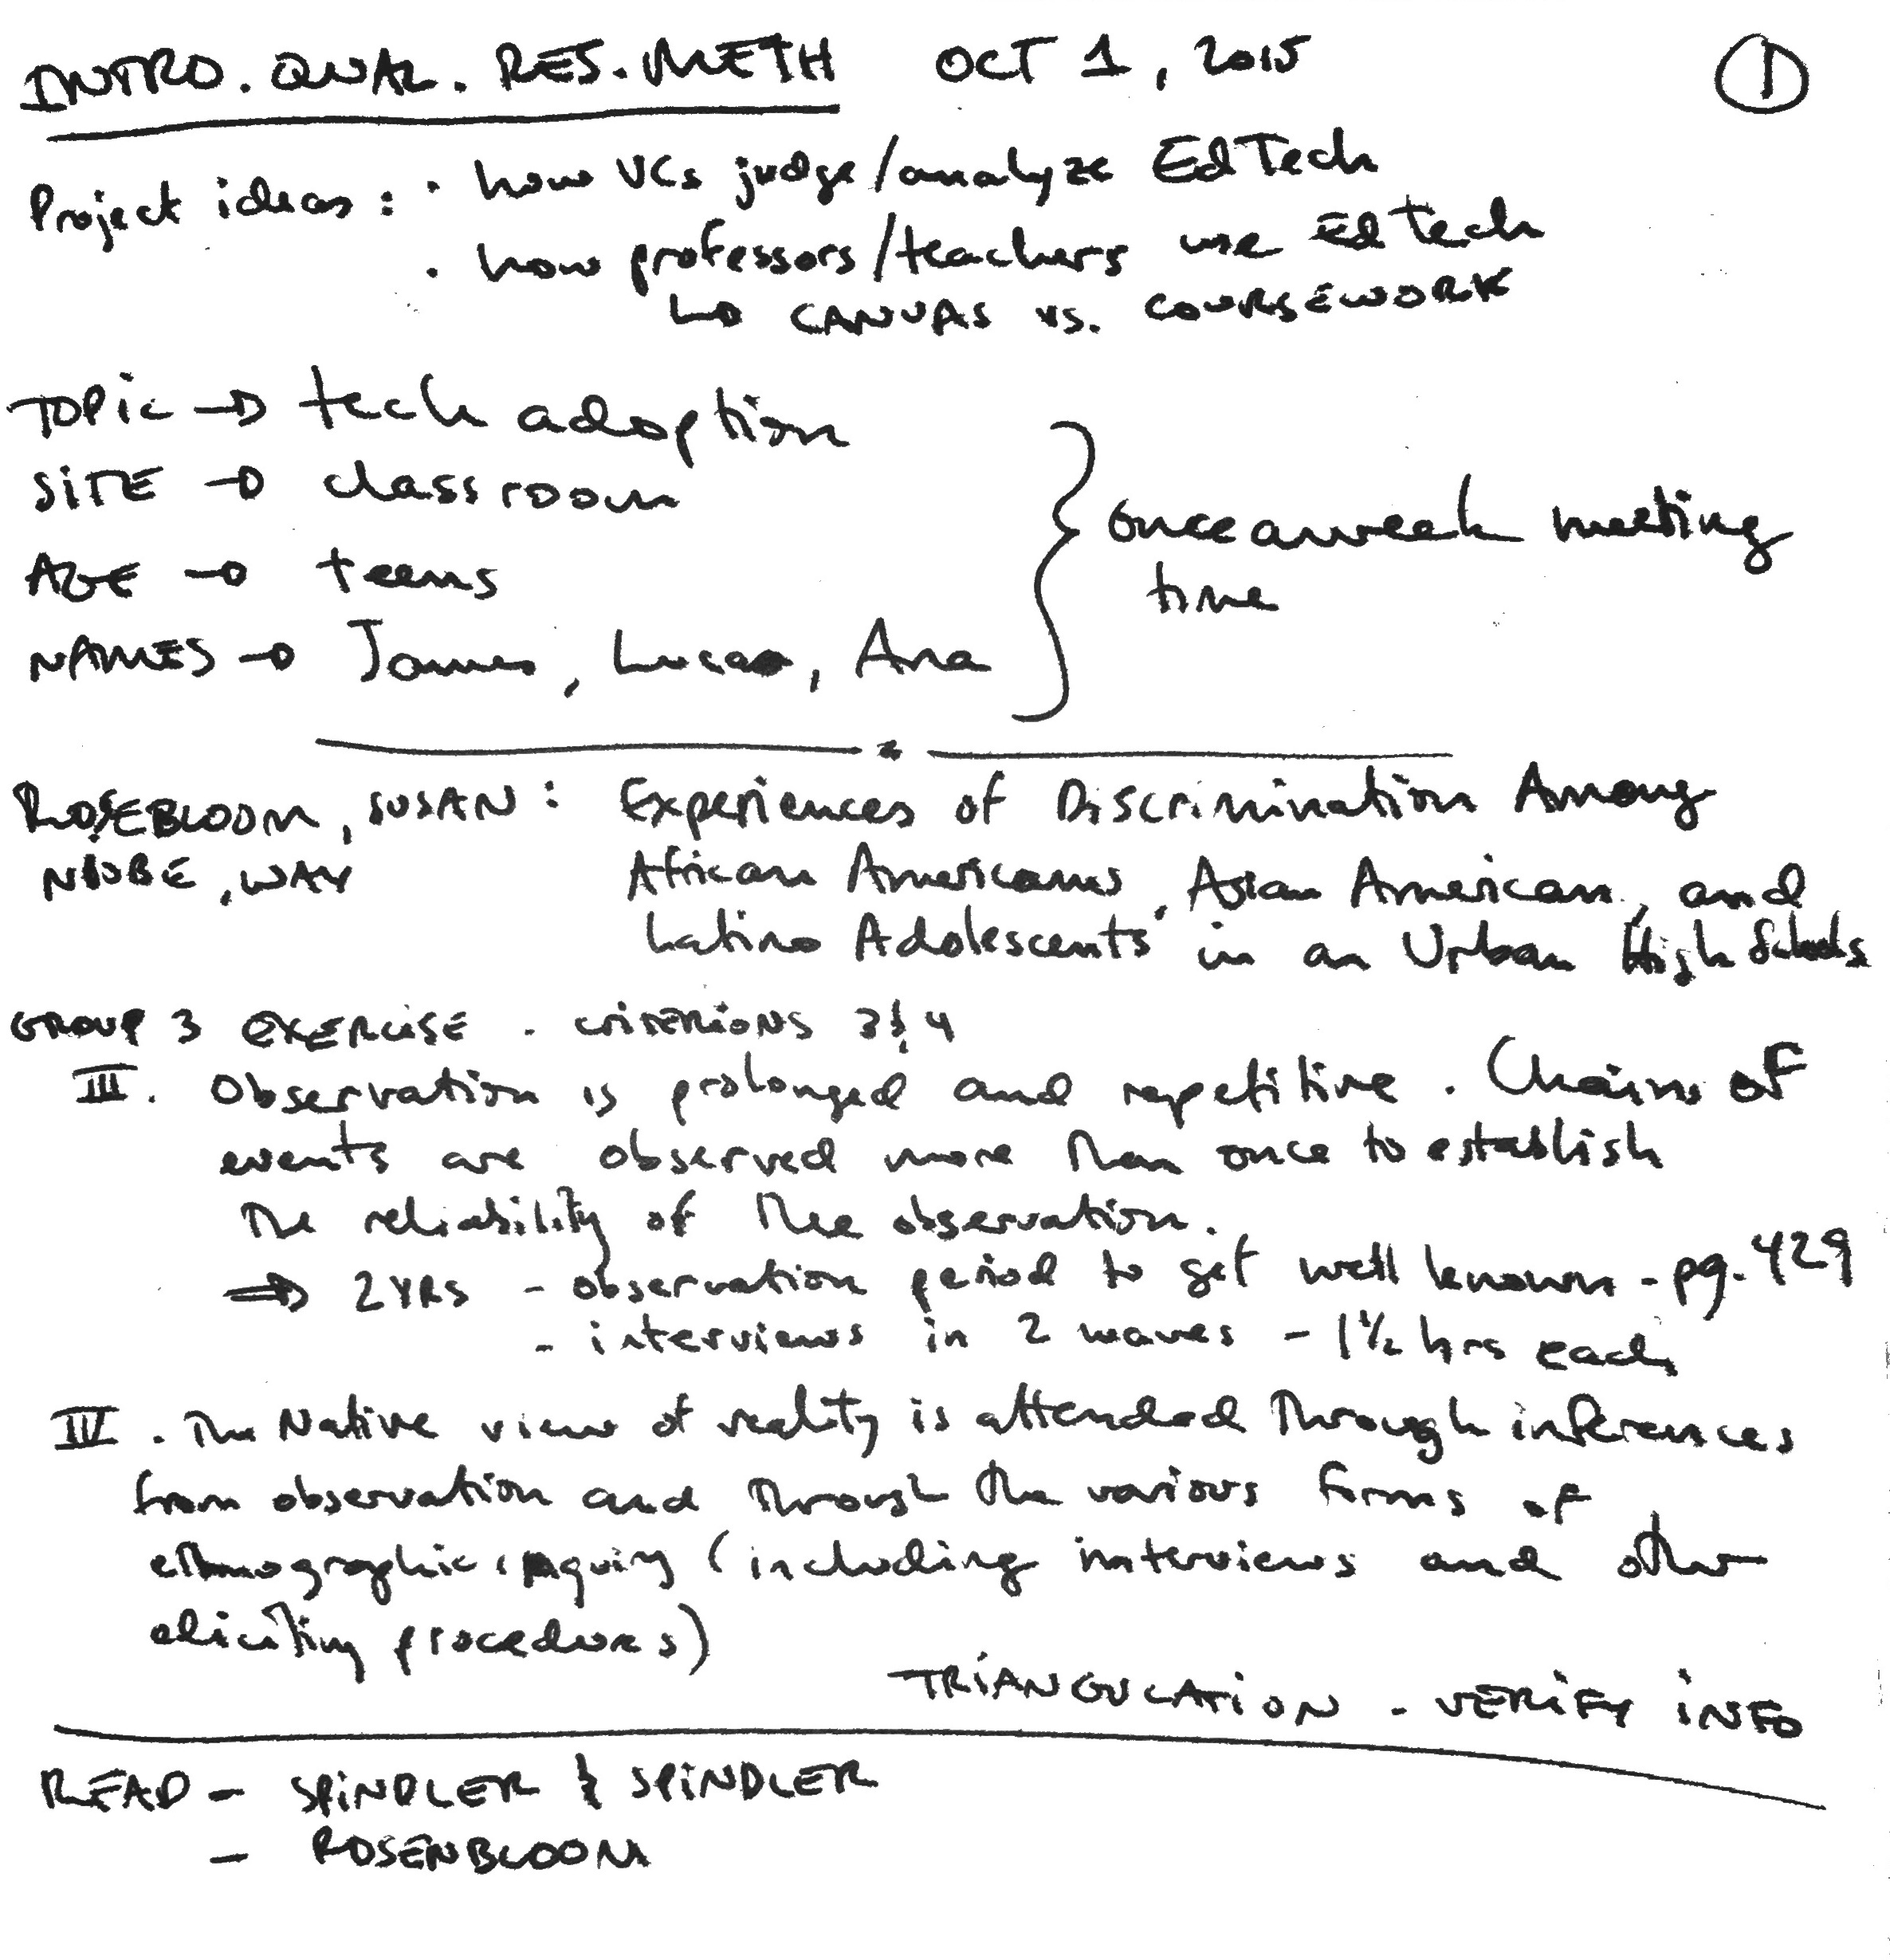 INTRO. QUAL. RES. METH OCT 1, 2015 1
Project ideas: · how VCs judge/analyze EdTech
· how professors/teachers use Ed Tech
↳ CANVAS vs. COURSEWORK
TOPIC → tech adoption
SITE → classroom
AGE → teens
NAMES → James, Lucas, Ana
once a week meeting
time
ROSEBLOOM, SUSAN: Experiences of Discrimination Among
NIOBE, WAY African Americans, Asian American, and
Latino Adolescents in an Urban High Schools
GROUP 3 EXERCISE - CRITERIONS 3 & 4
III. Observation is prolonged and repetitive. Chains of
events are observed more than once to establish
the reliability of the observation.
⇒ 2 YRS - observation period to get well known - pg. 429
- interviews in 2 waves - 1½ hrs each
IV. The Native view of reality is attended through inferences
from observation and through the various forms of
ethnographic inquiry (including innterviews and other
eliciting procedures)
TRIANGULATION - VERIFY INFO
READ - SPINDLER & SPINDLER
- ROSENBLOOM